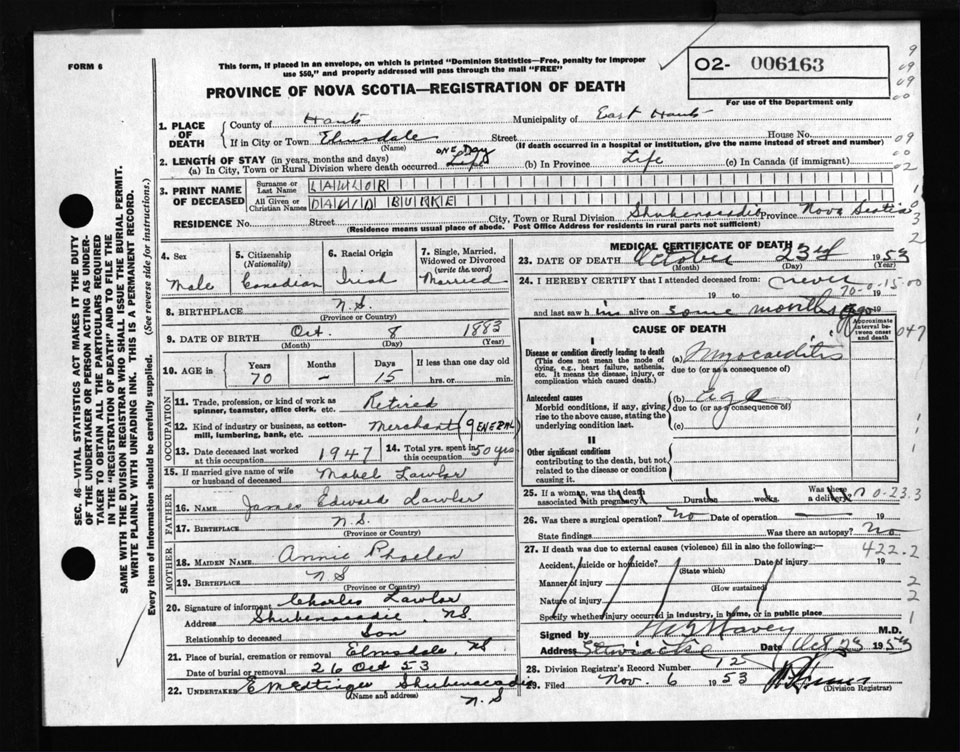 FORM 6
This form, if placed in an envelope, on which is printed "Dominion Statistics—Free, penalty for improper
use $50," and properly addressed will pass through the mail "FREE"
O2- 006163
For use of the Department only
PROVINCE OF NOVA SCOTIA—REGISTRATION OF DEATH
1. PLACE OF DEATH
County of Hants Municipality of East Hants
If in City or Town Elmsdale Street House No.
(Name) (If death occurred in a hospital or institution, give the name instead of street and number)
2. LENGTH OF STAY (in years, months and days)
(a) In City, Town or Rural Division where death occurred ONE DAY Life (b) In Province Life (c) In Canada (if immigrant)
3. PRINT NAME OF DECEASED
Surname or Last Name LAWLOR
All Given or Christian Names DAVID BURKE
RESIDENCE No. Street City, Town or Rural Division Shubenacadie Province Nova Scotia
(Residence means usual place of abode. Post Office Address for residents in rural parts not sufficient)
4. Sex
Male
5. Citizenship
(Nationality)
Canadian
6. Racial Origin
Irish
7. Single, Married,
Widowed or Divorced
(write the word)
Married
8. BIRTHPLACE N.S.
(Province or Country)
9. DATE OF BIRTH Oct. 8 1883
(Month) (Day) (Year)
10. AGE in Years Months Days If less than one day old
70 – 15 hrs. or min.
OCCUPATION
11. Trade, profession, or kind of work as
spinner, teamster, office clerk, etc. Retired
12. Kind of industry or business, as cotton-
mill, lumbering, bank, etc. Merchant (GENERAL)
13. Date deceased last worked
at this occupation 1947
14. Total yrs. spent in
this occupation 50 yrs
15. If married give name of wife
or husband of deceased Mabel Lawlor
FATHER
16. NAME James Edward Lawlor
17. BIRTHPLACE N.S.
(Province or Country)
MOTHER
18. MAIDEN NAME Annie Phaelen
19. BIRTHPLACE N S
(Province or Country)
20. Signature of informant Charles Lawlor
Address Shubenacadie NS.
Relationship to deceased Son
21. Place of burial, cremation or removal Elmsdale, NS
Date of burial or removal 26 Oct 53
22. UNDERTAKER E M Ettinger Shubenacadie
(Name and address) N.S
MEDICAL CERTIFICATE OF DEATH
23. DATE OF DEATH October 23rd 1953
(Month) (Day) (Year)
24. I HEREBY CERTIFY that I attended deceased from: never
19 to 19
70-0-15-00
and last saw him alive on some months ago 19
CAUSE OF DEATH
Approximate interval between onset and death
I
Disease or condition directly leading to death
(This does not mean the mode of
dying, e.g., heart failure, asthenia,
etc. It means the disease, injury, or
complication which caused death.)
(a) Myocarditis
due to (or as a consequence of)
Antecedent causes
Morbid conditions, if any, giving
rise to the above cause, stating the
underlying condition last.
(b) age
due to (or as a consequence of)
(c)
II
Other significant conditions
contributing to the death, but not
related to the disease or condition
causing it.
25. If a woman, was the death
associated with pregnancy? Duration weeks. Was there
a delivery?
26. Was there a surgical operation? No Date of operation — 19
State findings Was there an autopsy? No
27. If death was due to external causes (violence) fill in also the following:—
422.2
Accident, suicide or homicide? Date of injury 19
(State which)
Manner of injury
(How sustained)
Nature of injury
Specify whether injury occurred in industry, in home, or in public place
Signed by M.D.
Address Stewiacke Date Oct 23 1953
28. Division Registrar's Record Number 125
29. Filed Nov. 6 1953
(Division Registrar)
SEC. 46—VITAL STATISTICS ACT MAKES IT THE DUTY
OF THE UNDERTAKER OR PERSON ACTING AS UNDER-
TAKER TO OBTAIN ALL THE PARTICULARS REQUIRED
IN THE "REGISTRATION OF DEATH" AND TO FILE THE
SAME WITH THE DIVISION REGISTRAR WHO SHALL ISSUE THE BURIAL PERMIT.
WRITE PLAINLY WITH UNFADING INK. THIS IS A PERMANENT RECORD.
Every item of information should be carefully supplied. (See reverse side for instructions.)